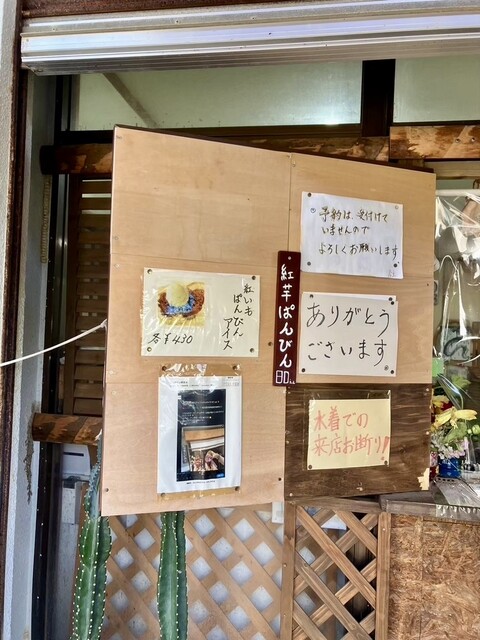 予約は、受付けて
いませんので
よろしくお願いします
紅いも
ぱんびん
アイス
各¥430
紅芋ぱんびん
ありがとう
ございます
水着での
来店お断り!